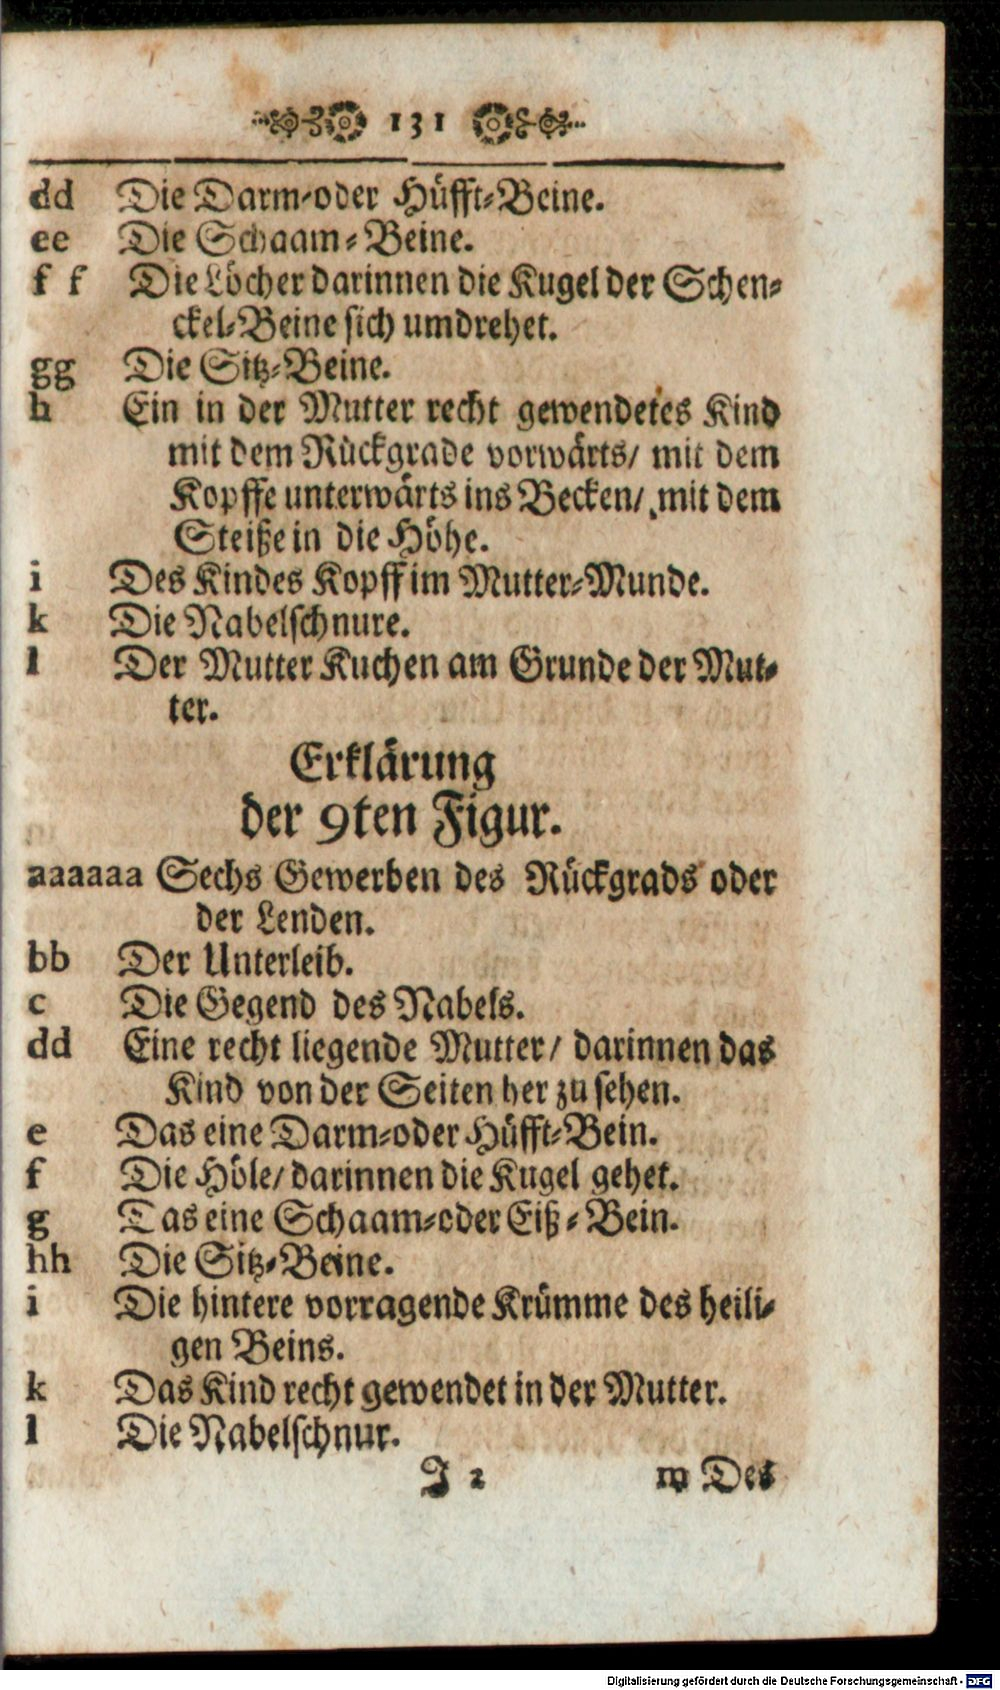 131
dd Die Darm-oder Hüfft-Beine.
ee Die Schaam-Beine.
f f Die Löcher darinnen die Kugel der Schen-
ckel-Beine sich umdrehet.
gg Die Sitz-Beine.
h Ein in der Mutter recht gewendetes Kind
mit dem Rückgrade vorwärts/ mit dem
Kopffe unterwärts ins Becken/ mit dem
Steiße in die Höhe.
i Des Kindes Kopff im Mutter-Munde.
k Die Nabelschnure.
l Der Mutter Kuchen am Grunde der Mut-
ter.
Erklärung
der 9ten Figur.
aaaaaa Sechs Gewerben des Rückgrads oder
der Lenden.
bb Der Unterleib.
c Die Gegend des Nabels.
dd Eine recht liegende Mutter/ darinnen das
Kind von der Seiten her zu sehen.
e Das eine Darm-oder Hüfft-Bein.
f Die Höle/ darinnen die Kugel gehet.
g Das eine Schaam-oder Eiß-Bein.
hh Die Sitz-Beine.
i Die hintere vorragende Krümme des heili-
gen Beins.
k Das Kind recht gewendet in der Mutter.
l Die Nabelschnur.
J 2 m Des
Digitalisierung gefördert durch die Deutsche Forschungsgemeinschaft - DFG